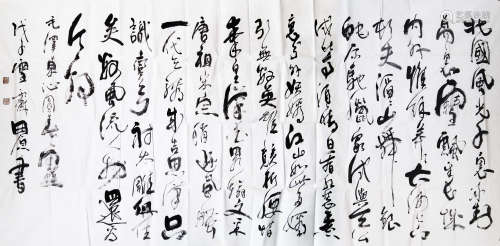 北國風光千里冰封
万里雪飄望長城
内外惟餘莽莽大河上下
頓失滔滔山舞銀
蛇原馳蠟象欲與天公
試比高須晴日看紅裝素
裹分外妖嬈江山如此多嬌
引無數英雄競折腰惜
秦皇漢武略輸文采
唐宗宋祖稍遜風騷
一代天驕成吉思汗只
識彎弓射大雕俱往
矣數風流人物還看
今朝
毛澤東沁園春雪
戊子 田原書